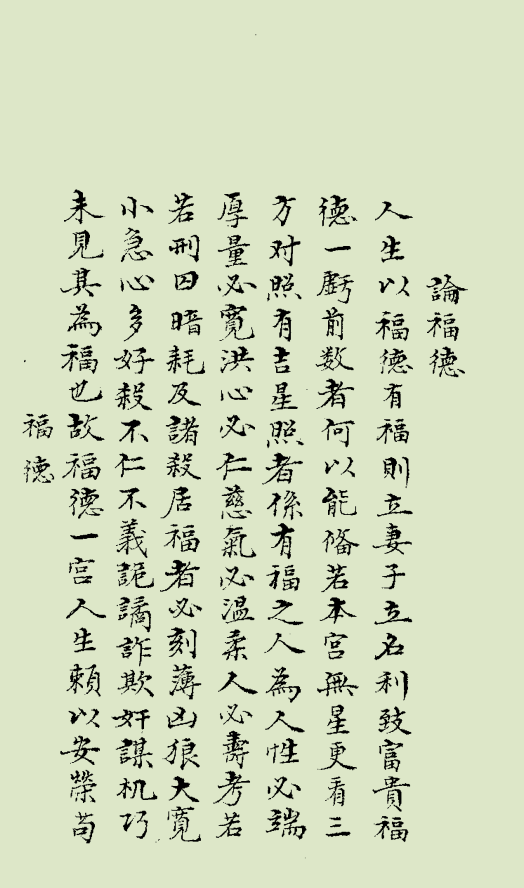 論福德
人生以福德有福則立妻子立名利致富貴福
德一虧前数者何以能俻若本宮無星更看三
方対照有吉星照者係有福之人為人性必端
厚量必寛洪心必仁慈氣必温柔人必壽考若
若刑囚暗耗及諸殺居福者必刻薄凶狼大寛
小急心多好殺不仁不義詭譎詐欺奸謀机巧
未見其為福也故福德一宮人生頼以安榮苟
福德